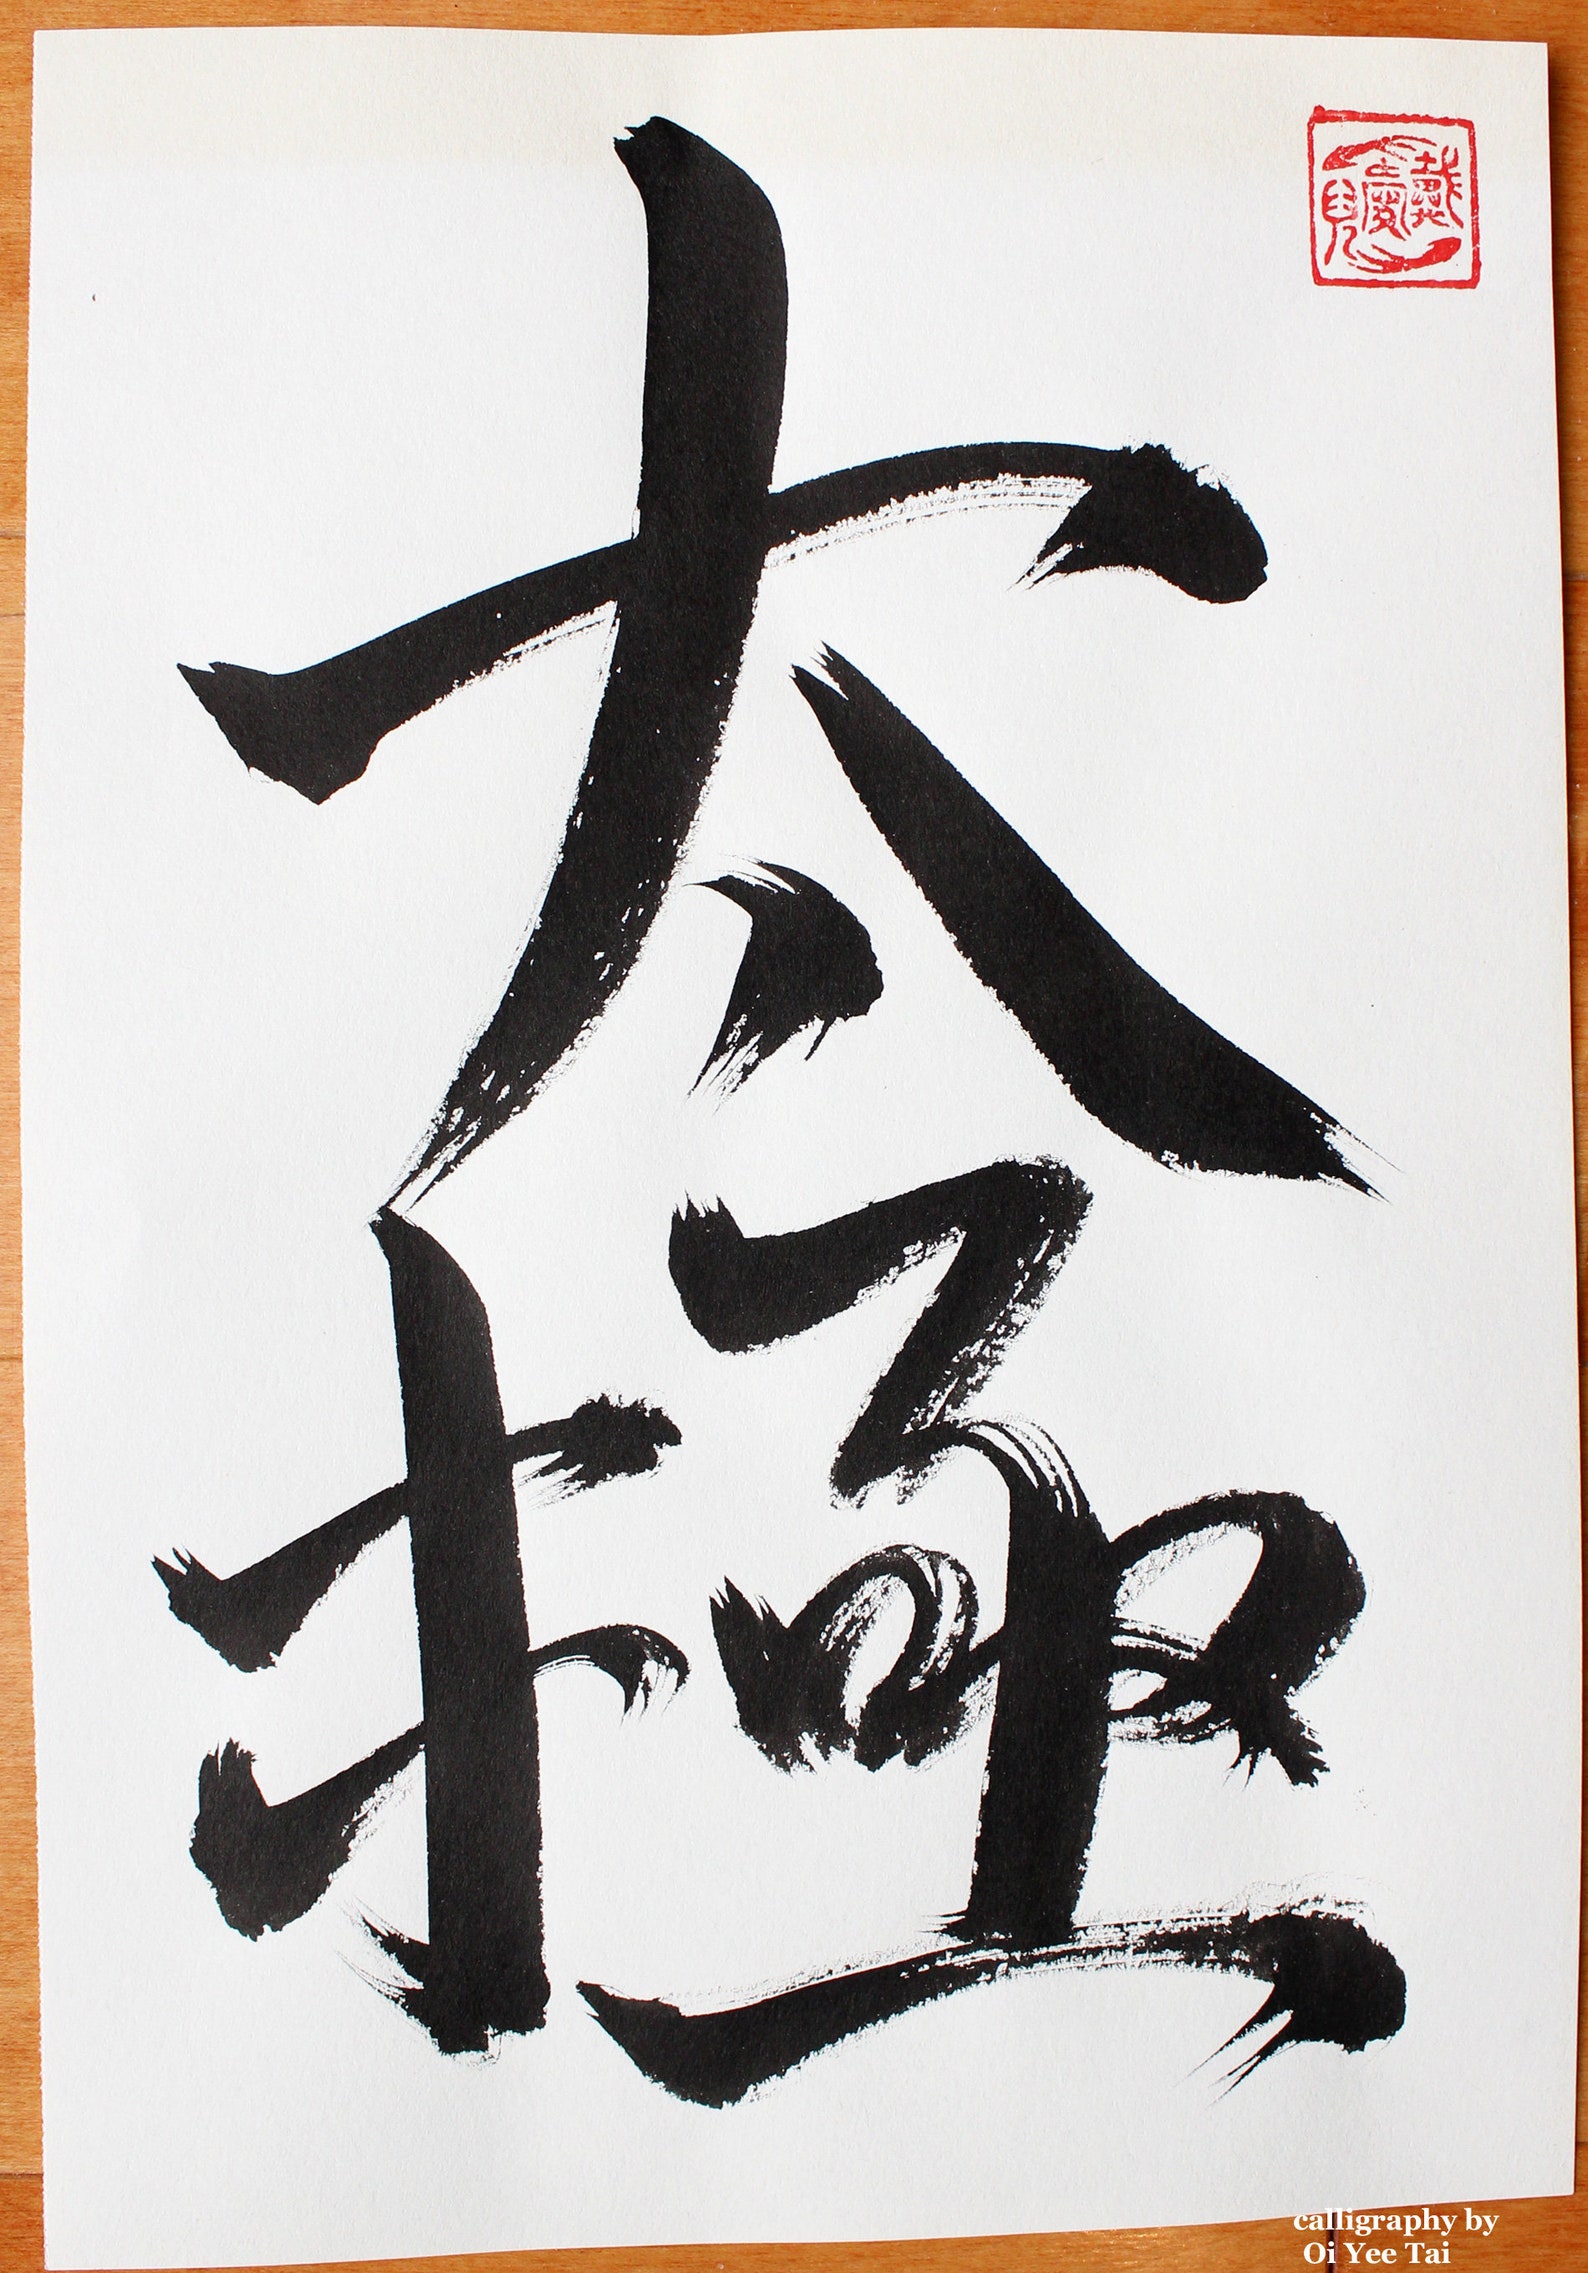 太
極
calligraphy by
Oi Yee Tai